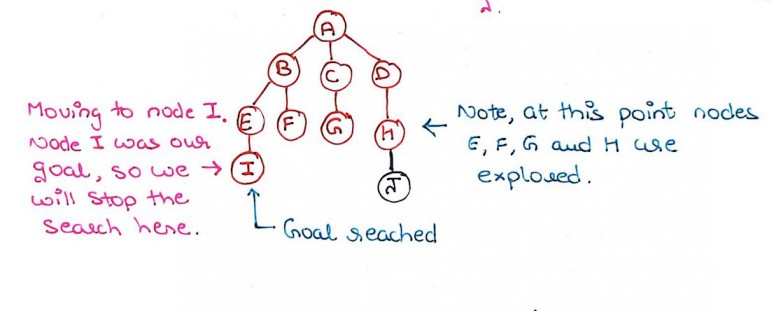 2.
A
B C D
E F G H
I J
Moving to node I.
Node I was our
goal, so we →
will stop the
search here.
← Note, at this point nodes
E, F, G and H are
explored.
Goal reached